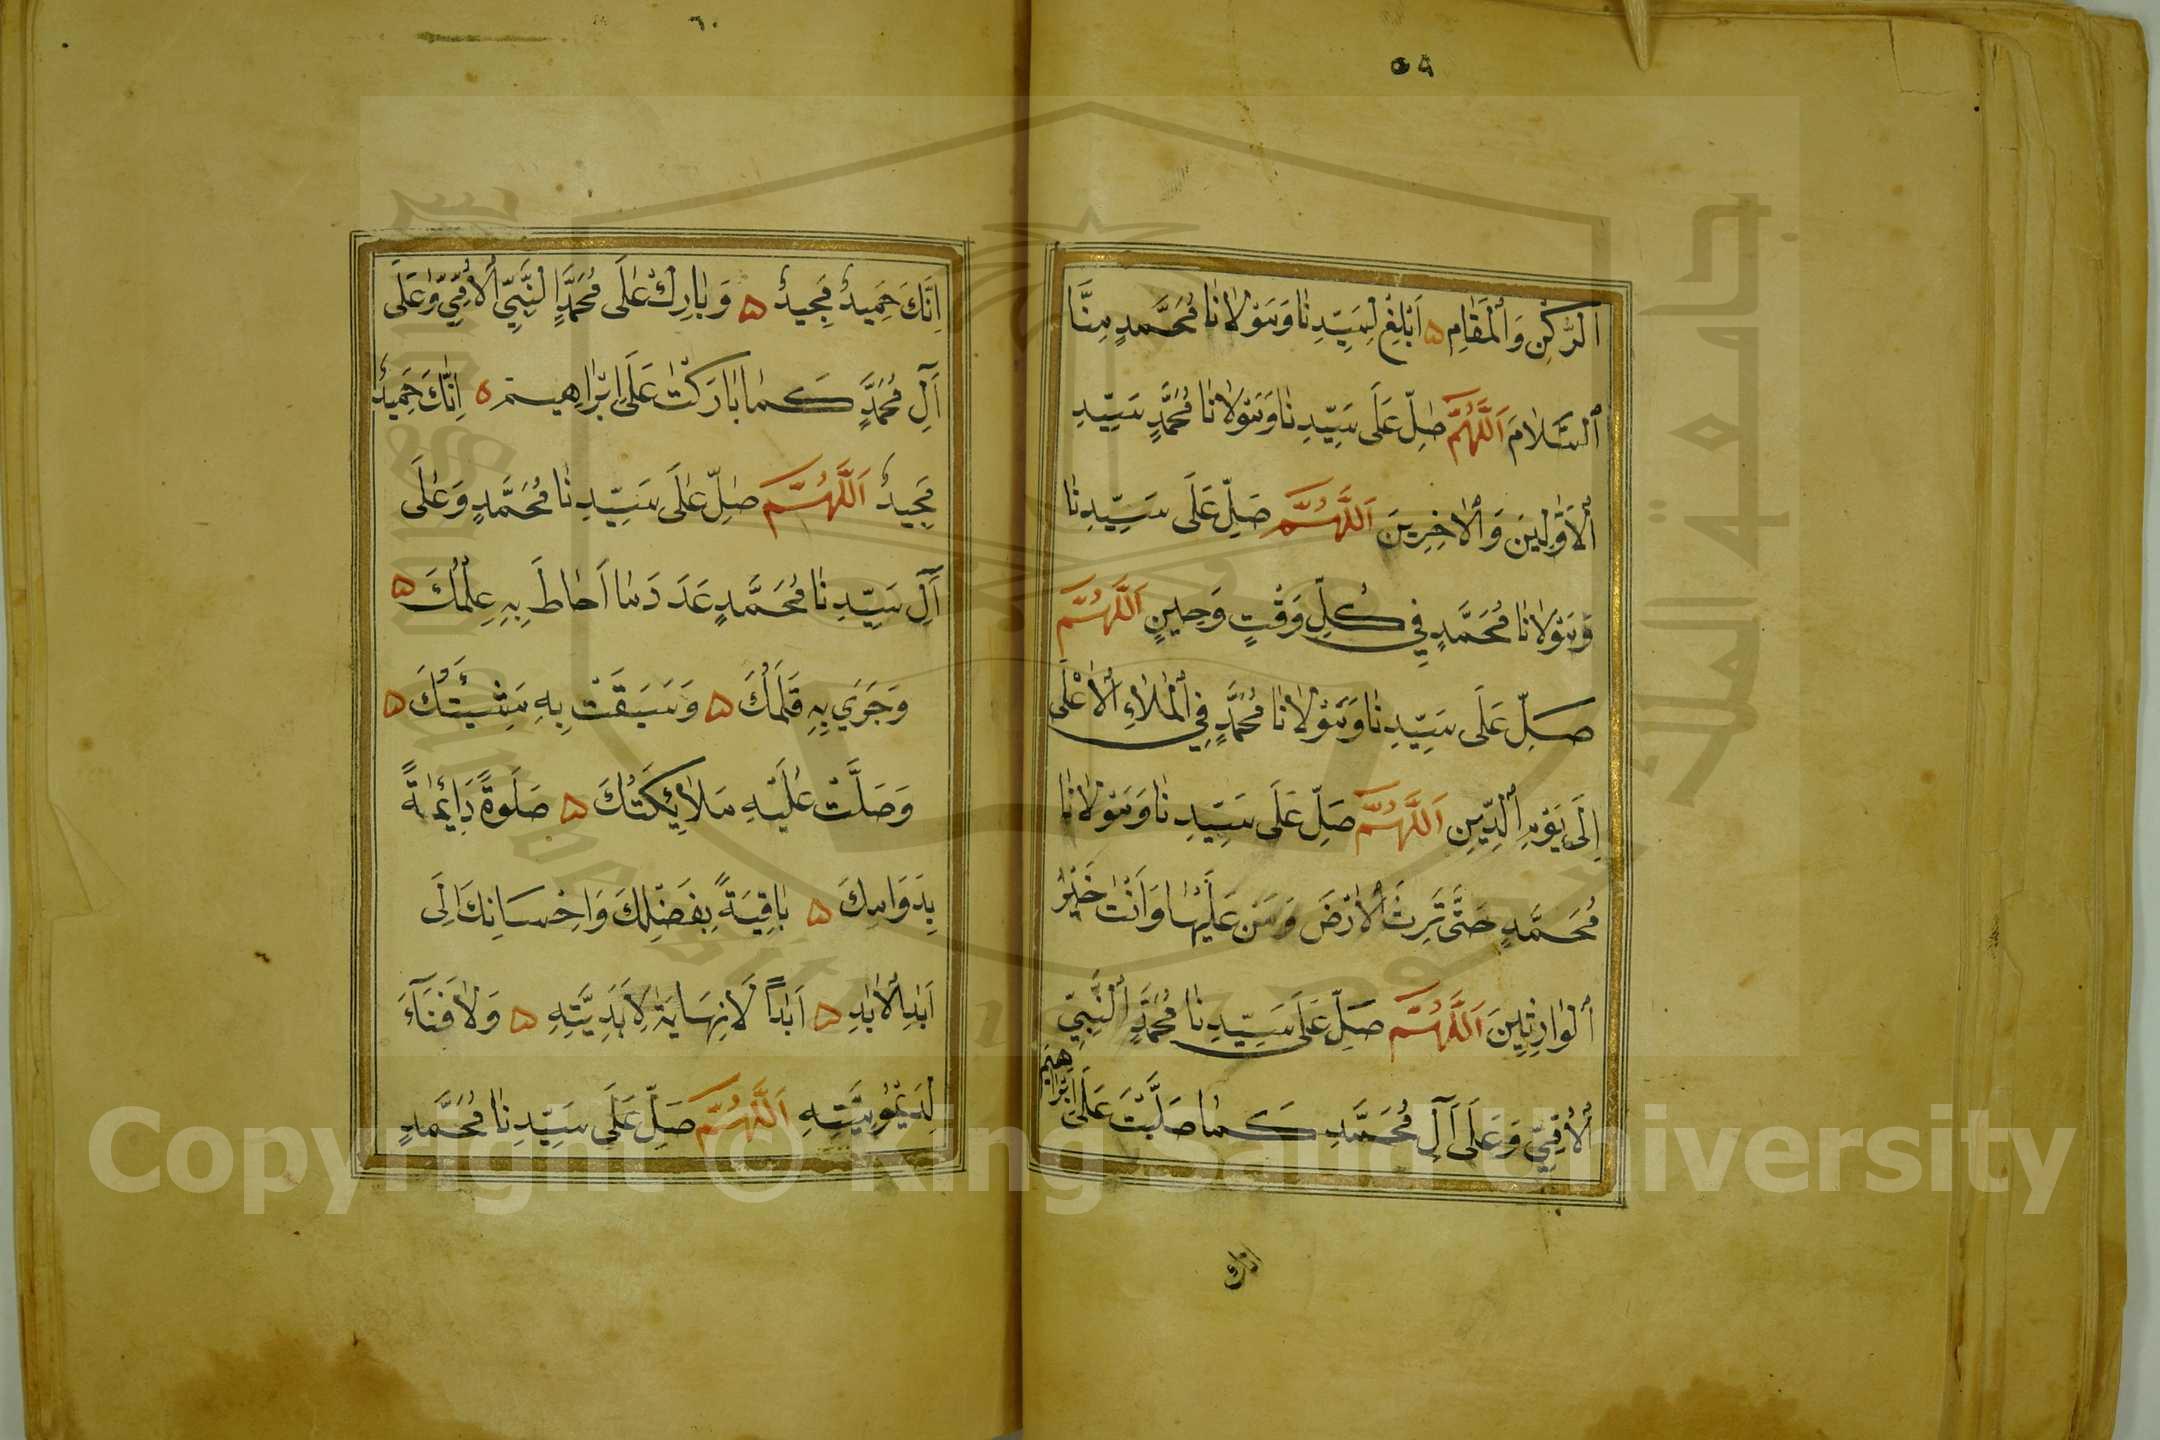 ٥٩
اَلرُّكْنِ وَٱلْمَقَامِ ۵ اَبْلِغْ لِسَيِّدِنَا وَمَوْلَانَا مُحَمَّدٍ مِنَّا
ٱلسَّلَامَ اَللّٰهُمَّ صَلِّ عَلَى سَيِّدِنَا وَمَوْلَانَا مُحَمَّدٍ سَيِّدِ
ٱلْاَوَّلِينَ وَٱلْاٰخِرِينَ اَللّٰهُمَّ صَلِّ عَلَى سَيِّدِنَا
وَمَوْلَانَا مُحَمَّدٍ فِي كُلِّ وَقْتٍ وَحِينٍ اَللّٰهُمَّ
صَلِّ عَلَى سَيِّدِنَا وَمَوْلَانَا مُحَمَّدٍ فِي ٱلْمَلَاءِ ٱلْاَعْلَى
اِلَى يَوْمِ ٱلدِّينِ اَللّٰهُمَّ صَلِّ عَلَى سَيِّدِنَا وَمَوْلَانَا
مُحَمَّدٍ حَتَّى تَرِثَ ٱلْاَرْضَ وَمَنْ عَلَيْهَا وَاَنْتَ خَيْرُ
ٱلْوَارِثِينَ اَللّٰهُمَّ صَلِّ عَلَى سَيِّدِنَا مُحَمَّدٍ ٱلنَّبِيِّ
ٱلْاُمِّيِّ وَعَلَى اٰلِ مُحَمَّدٍ كَمَا صَلَّيْتَ عَلَى اِبْرَاهِيمَ
انك
٦٠
اِنَّكَ حَمِيدٌ مَجِيدٌ ۵ وَبَارِكْ عَلَى مُحَمَّدٍ النَّبِيِّ الْاُمِّيِّ وَعَلَى
اٰلِ مُحَمَّدٍ كَمَا بَارَكْتَ عَلَى اِبْرَاهِيمَ ۵ اِنَّكَ حَمِيدٌ
مَجِيدٌ اَللّٰهُمَّ صَلِّ عَلَى سَيِّدِنَا مُحَمَّدٍ وَعَلَى
اٰلِ سَيِّدِنَا مُحَمَّدٍ عَدَدَ مَا اَحَاطَ بِهِ عِلْمُكَ ۵
وَجَرَى بِهِ قَلَمُكَ ۵ وَسَبَقَتْ بِهِ مَشِيئَتُكَ ۵
وَصَلَّتْ عَلَيْهِ مَلَائِكَتُكَ ۵ صَلَوةً دَائِمَةً
بِدَوَامِكَ ۵ بَاقِيَةً بِفَضْلِكَ وَاِحْسَانِكَ اِلَى
اَبَدِ الْاَبَدِ ۵ اَبَدًا لَا نِهَايَةَ لِاَبَدِيَّتِهِ ۵ وَلَا فَنَاءَ
لِدَيْمُومِيَّتِهِ اَللّٰهُمَّ صَلِّ عَلَى سَيِّدِنَا مُحَمَّدٍ
Copyright © King Saud University